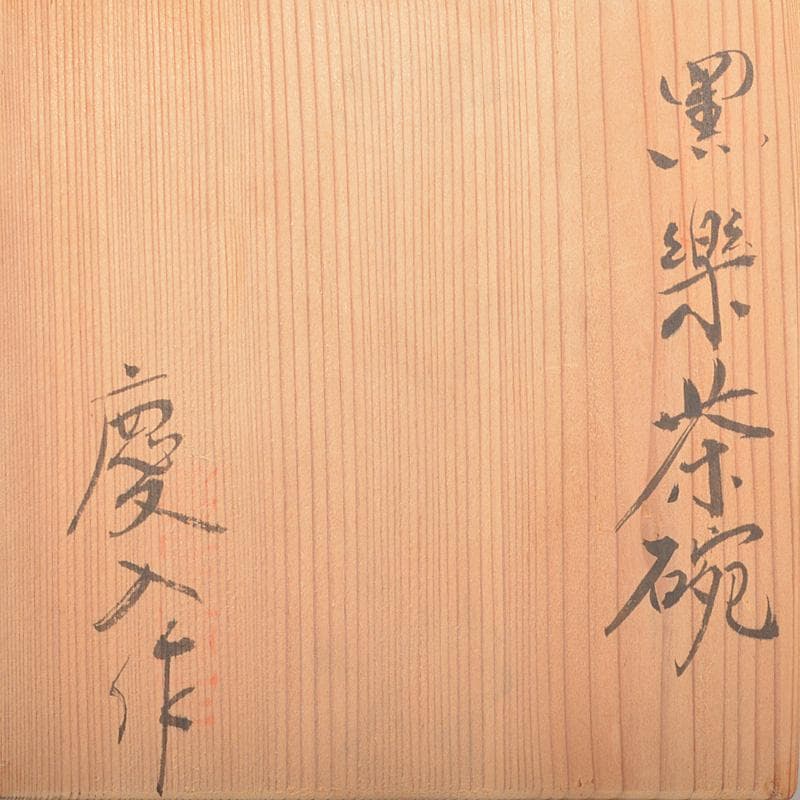 黒樂茶碗
慶入作